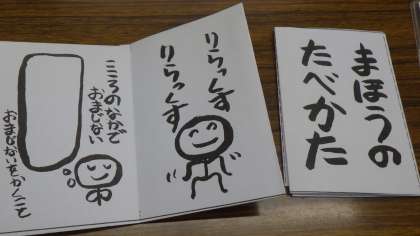 まほうの
たべかた
りらっくす
りらっくす
こころのなかで
おまじない
おまじないをかくこと